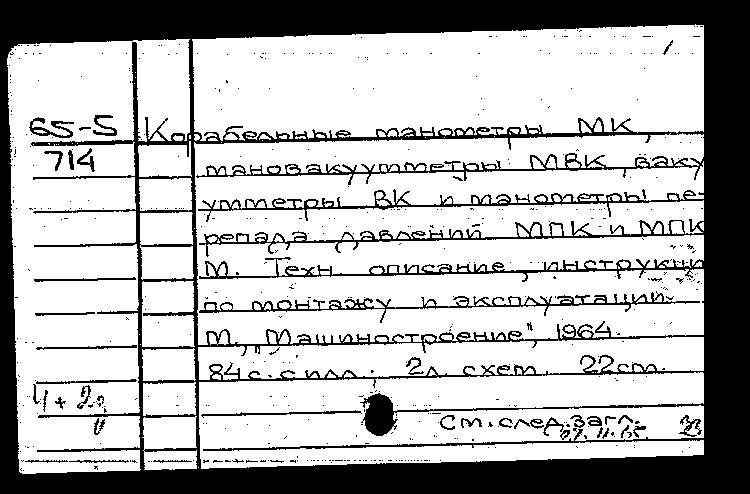 65-5 Корабельные манометры МК,
714 мановакуумметры МВК, ваку
умметры ВК и манометры пе-
репада давлений МПК и МПК
М. Техн. описание, инструкци
по монтажу и эксплуатации.
М., "Машиностроение", 1964.
84 с. с илл.; 2 л. схем. 22 см.
4 + 2
См. след. загл.